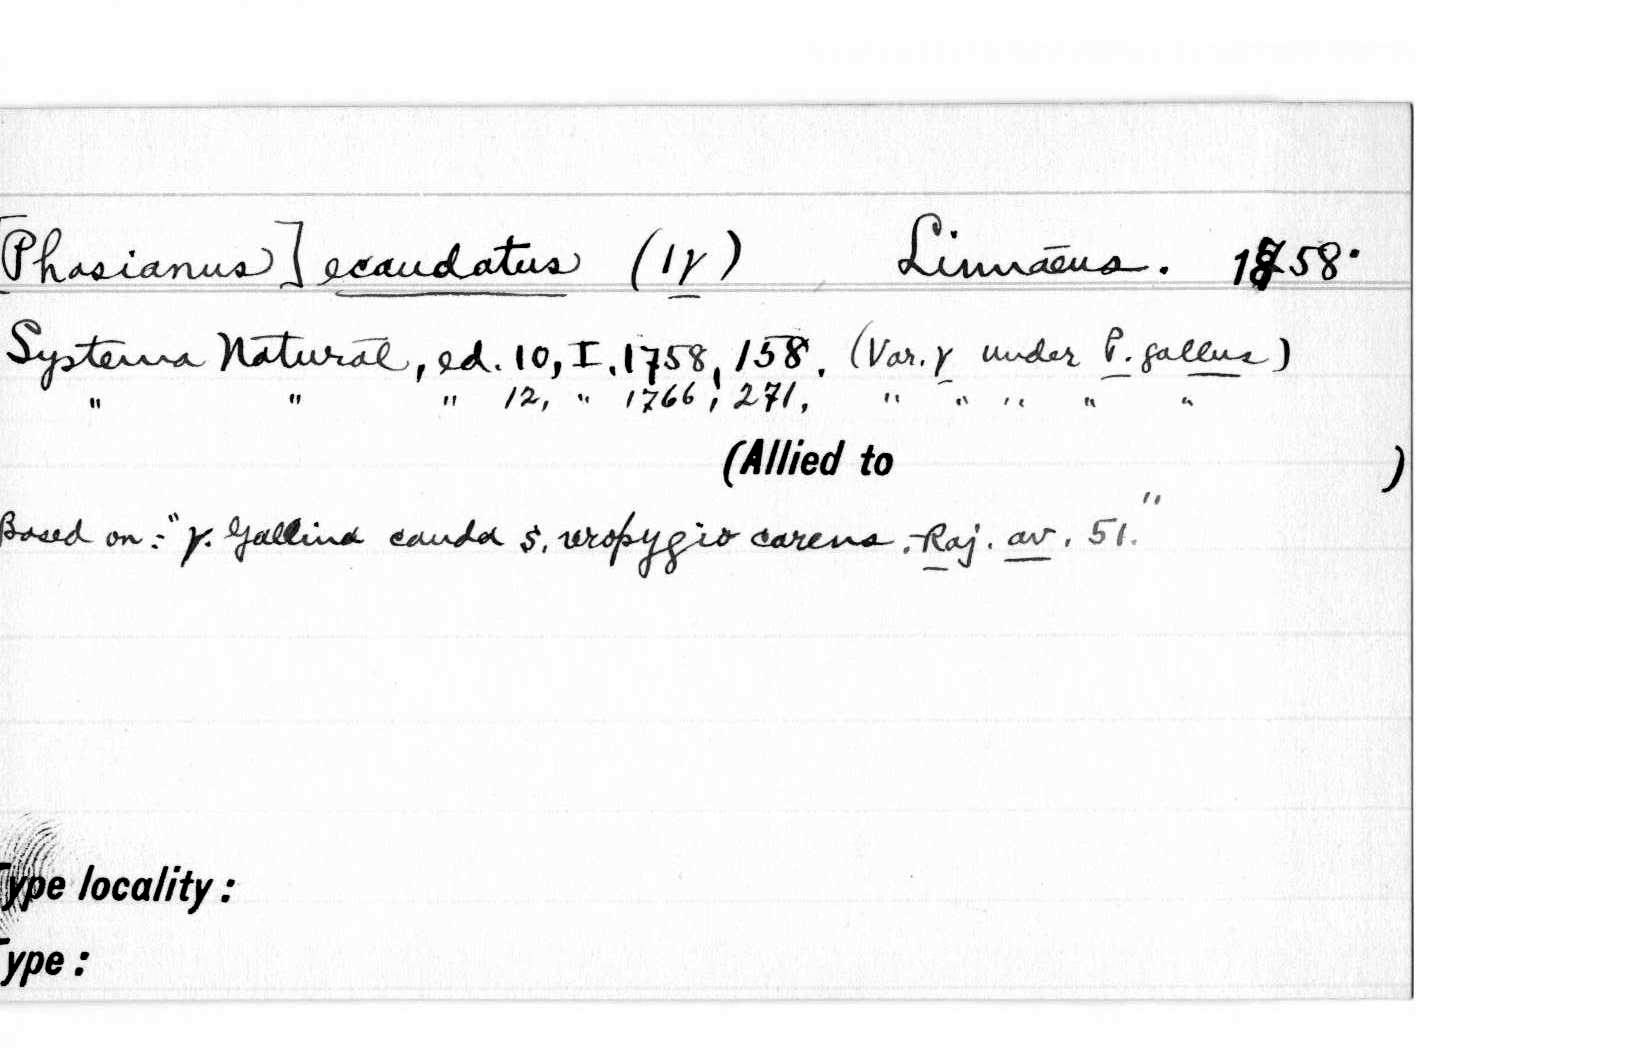 [Phasianus] ecaudatus (1γ) Linnaeus. 1758.
Systema Naturae, ed. 10, I, 1758, 158. (Var. γ under P. gallus)
" " " 12, " 1766, 271, " " " " "
(Allied to )
Based on:- "γ. Gallina cauda s. uropygio carens. Raj. av. 51."
Type locality:
Type: